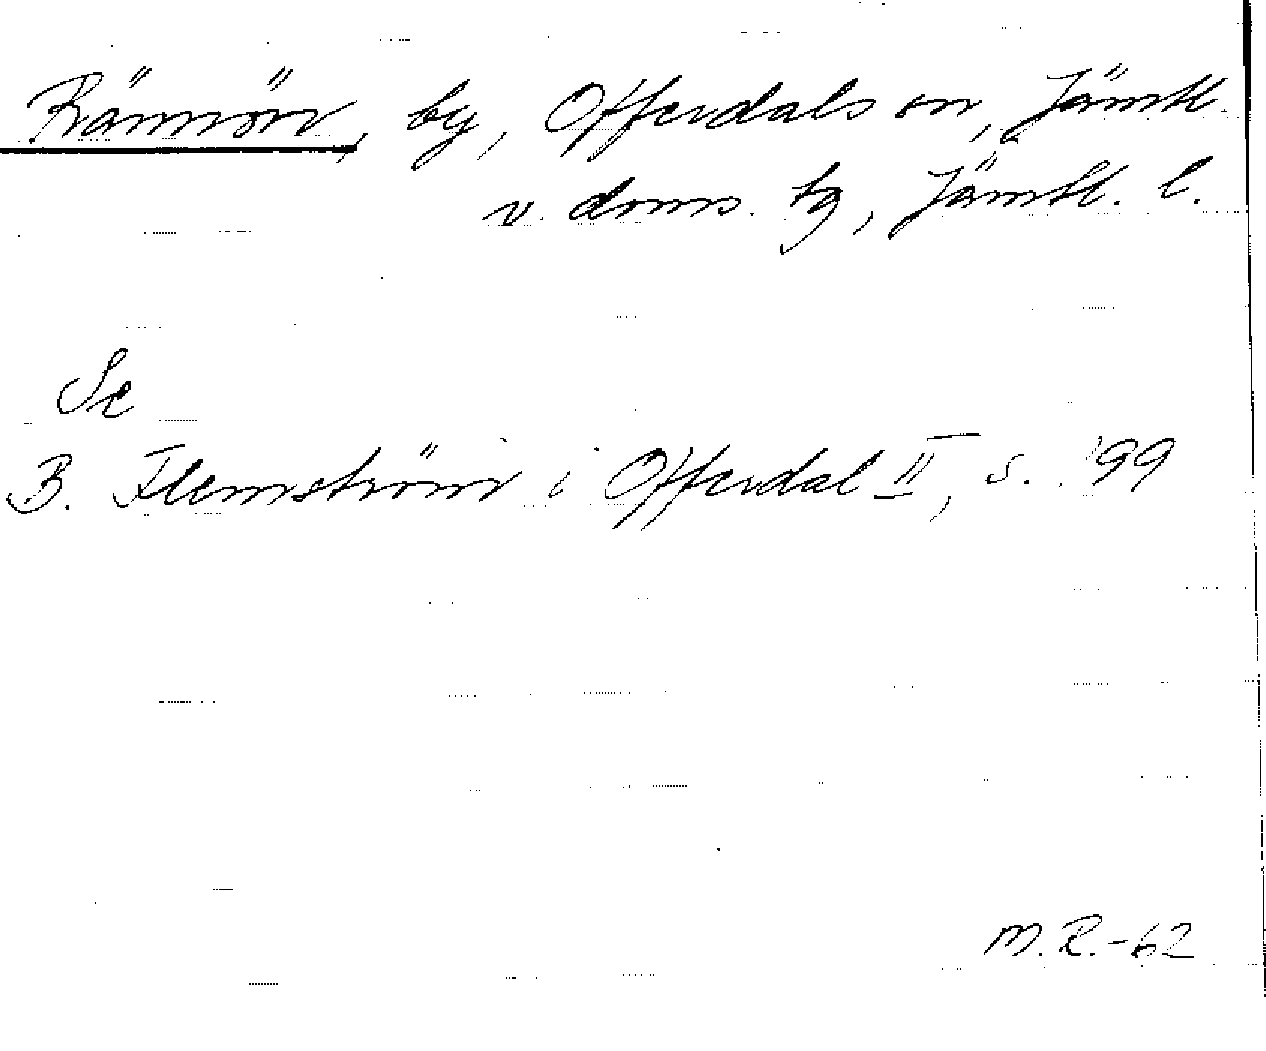 Rännön, by, Offerdals sn, Jämtl.
v. doms. tg, Jämtl. l.
Se
B. Flemström i Offerdal II, s. 199
M.R.-62